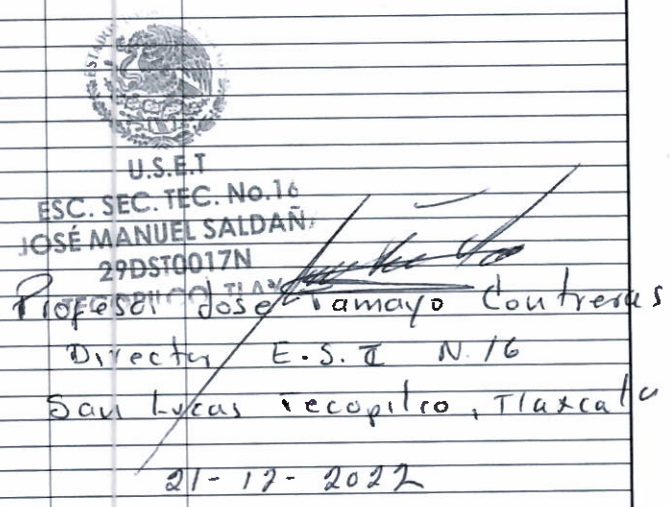 ESTADOS
U.S.E.T
ESC. SEC. TEC. No.16
JOSÉ MANUEL SALDAÑ
29DST0017N
Profesor José Tamayo Contreras
Director E.S.T N.16
San Lucas Tecopilco, Tlaxcala
21-12-2022